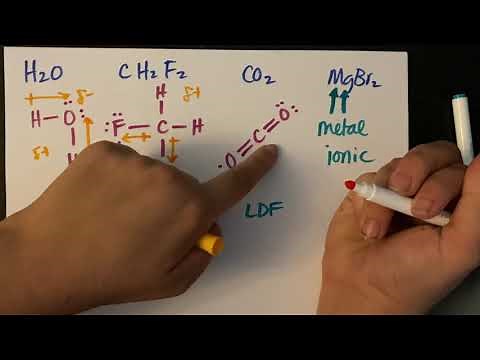 H2O CH2F2 CO2 MgBr2
H δ- δ+
H-O F-C-H C=O metal
δ+ H O ionic
LDF